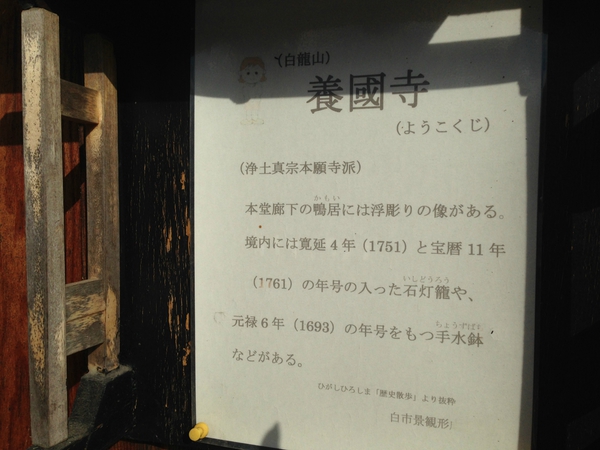 (白龍山)
養國寺
(ようこくじ)
(浄土真宗本願寺派)
本堂廊下の鴨居には浮彫りの像がある。
境内には寛延4年(1751)と宝暦11年
(1761)の年号の入った石灯籠や、
元禄6年(1693)の年号をもつ手水鉢
などがある。
ひがしひろしま「歴史散歩」より抜粋
白市景観形